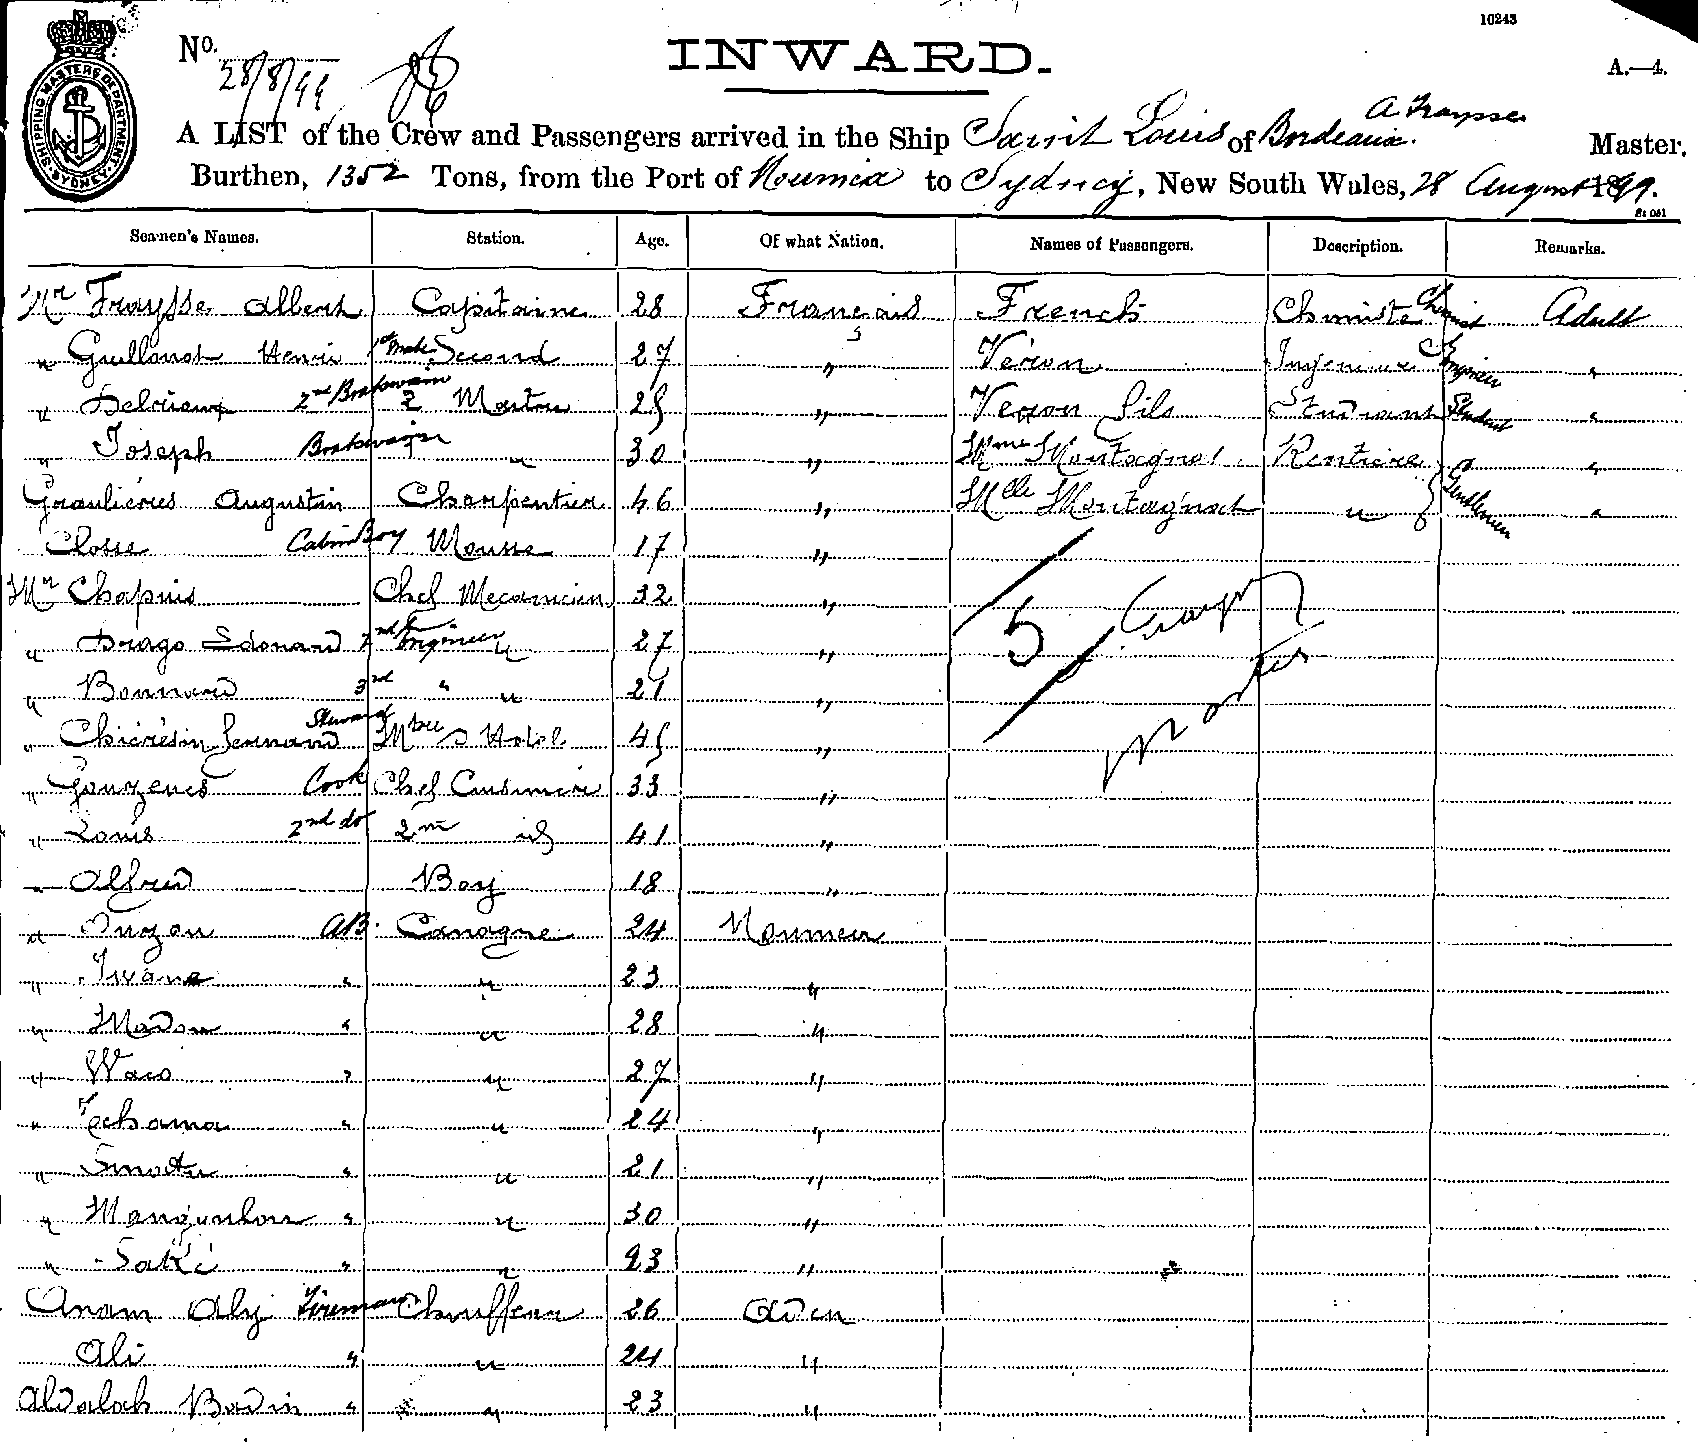 10243
No. 28/8/99
INWARD.
A.—4.
SHIPPING MASTERS DEPARTMENT SYDNEY
A Fraysse
A LIST of the Crew and Passengers arrived in the Ship Saint Louis of Bordeaux. Master.
Burthen, 1352 Tons, from the Port of Noumea to Sydney, New South Wales, 28 August 1899.
Seamen's Names. Station. Age. Of what Nation. Names of Passengers. Description. Remarks.
Mr Fraysse Albert Capitaine 28 Français French Chimiste Chemist Adult
" Henri 1st Mate Second 27 " Véron Ingenieur Engineer "
" 2nd Boatswain 2 Maitre 25 " Veron fils Etudiant Student "
" Joseph Boatswain " 30 " Mme Montagnat Rentiere "
Graulières Augustin Charpentier 46 " Melle Montagnat " Gentlemen "
Closse Cabin Boy Mousse 17 "
Mr Chapuis Chef Mecanicien 32 "
" Drago Edouard 2nd Engineer " 27 "
" Bonnard 3rd " " 21 "
" Fernand Steward Mtre d Hotel 45 "
" Gouzenes Cook Chef Cuisinier 33 "
" Louis 2nd do 2me id 41 "
" Alfred Boy 18 "
" AB. Canaque 24 Noumea
" Iwane " " 23 "
" Madou " " 28 "
" Waco " " 27 "
" Tchama " " 24 "
" " " 21 "
" " " 30 "
" Saké " " 23 "
Anam Aly Fireman Chauffeur 26 Aden
Ali " " 24 "
Abdalah Badin " " 23 "
5